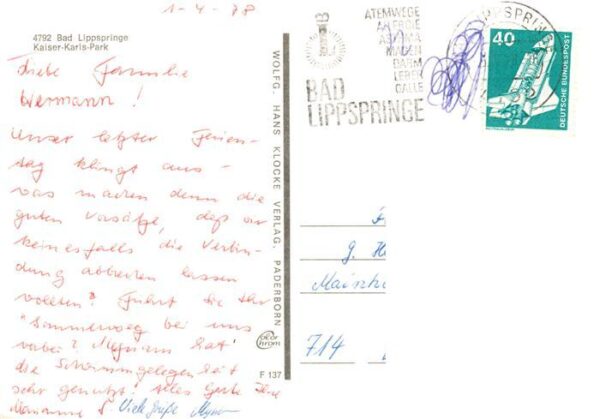 1-4-78
4792 Bad Lippspringe
Kaiser-Karls-Park
Liebe Familie
Wermann!
Unser letzter Ferien-
tag klingt aus -
was machen denn die
guten Vorsätze, daß wir
keinesfalls die Verbin-
dung abreißen lassen
wollten? Führt die Ihr
"Sommerweg bei uns
vorbei? Myriam hat
die Schwimmgelegenheit
sehr genutzt! Alles Gute Ihre
Marianne S. Viele Grüße Myriam
WOLFG. HANS KLOCKE VERLAG, PADERBORN
color
chrom
F 137
ATEMWEGE
ASTHMA
MAGEN
DARM
LEBER
GALLE
BAD
LIPPSPRINGE
LIPPSPRINGE
40
DEUTSCHE BUNDESPOST
F
g. H
714